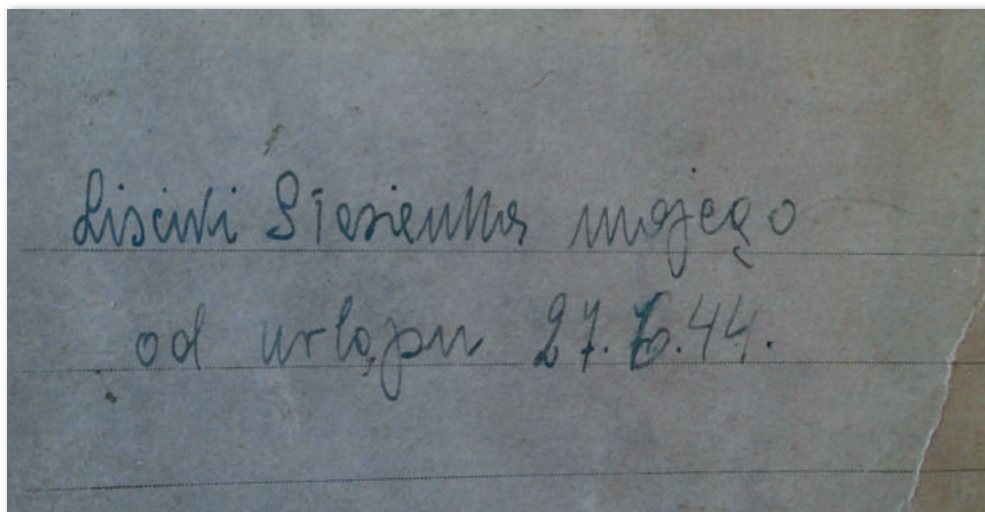 Liściki Stasieńka mojego
od urlopu 27.6.44.